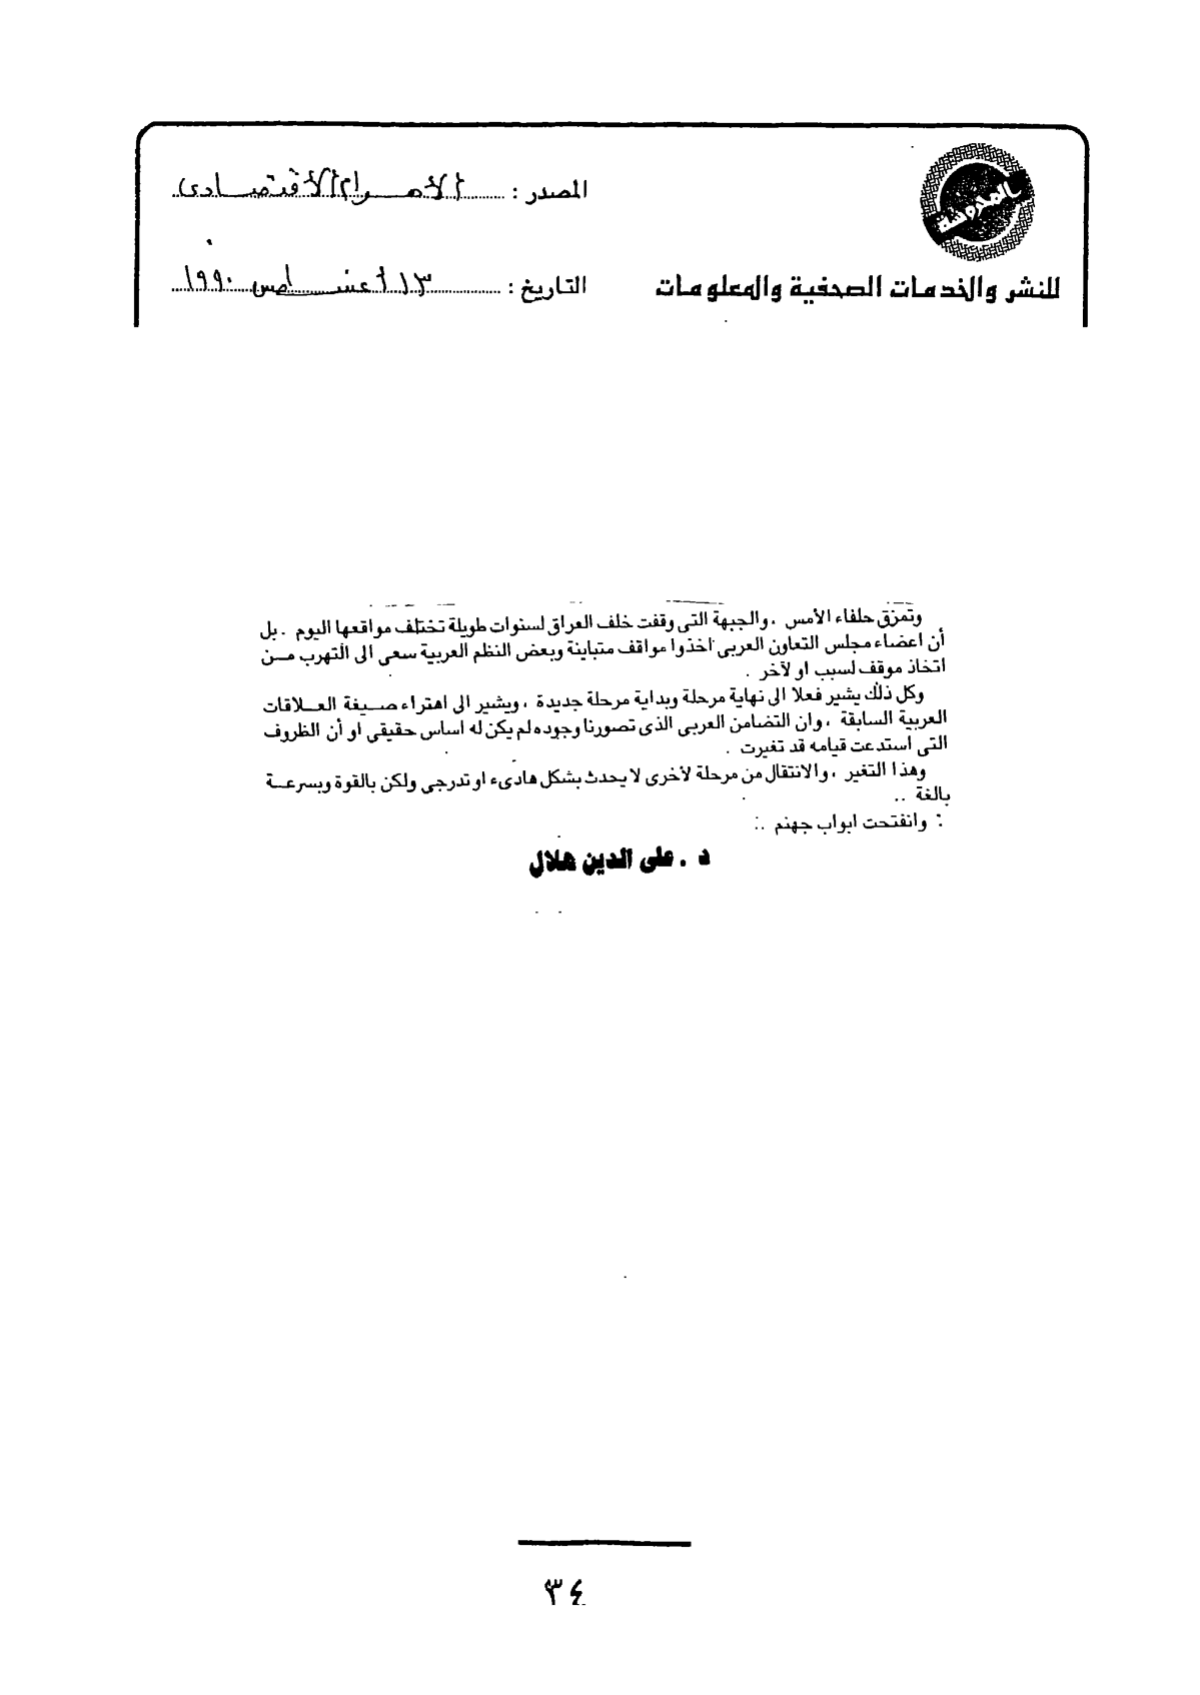 المصدر : الأهرام الاقتصادى
للنشر والخدمات الصحفية والمعلومات
التاريخ : ١٣ أغسطس ١٩٩٠
وتمزق حلفاء الأمس ، والجبهة التى وقفت خلف العراق لسنوات طويلة تختلف مواقعها اليوم . بل
أن اعضاء مجلس التعاون العربى اخذوا مواقف متباينة وبعض النظم العربية سعى الى التهرب مــن
اتخاذ موقف لسبب او لآخر .
وكل ذلك يشير فعلا الى نهاية مرحلة وبداية مرحلة جديدة ، ويشير الى اهتراء صــيغة العــلاقات
العربية السابقة ، وان التضامن العربى الذى تصورنا وجوده لم يكن له اساس حقيقى او أن الظروف
التى استدعت قيامه قد تغيرت .
وهذا التغير ، والانتقال من مرحلة لأخرى لا يحدث بشكل هادىء او تدرجى ولكن بالقوة وبسرعــة
بالغة ..
: وانفتحت ابواب جهنم .:
د . على الدين هلال
٣٤